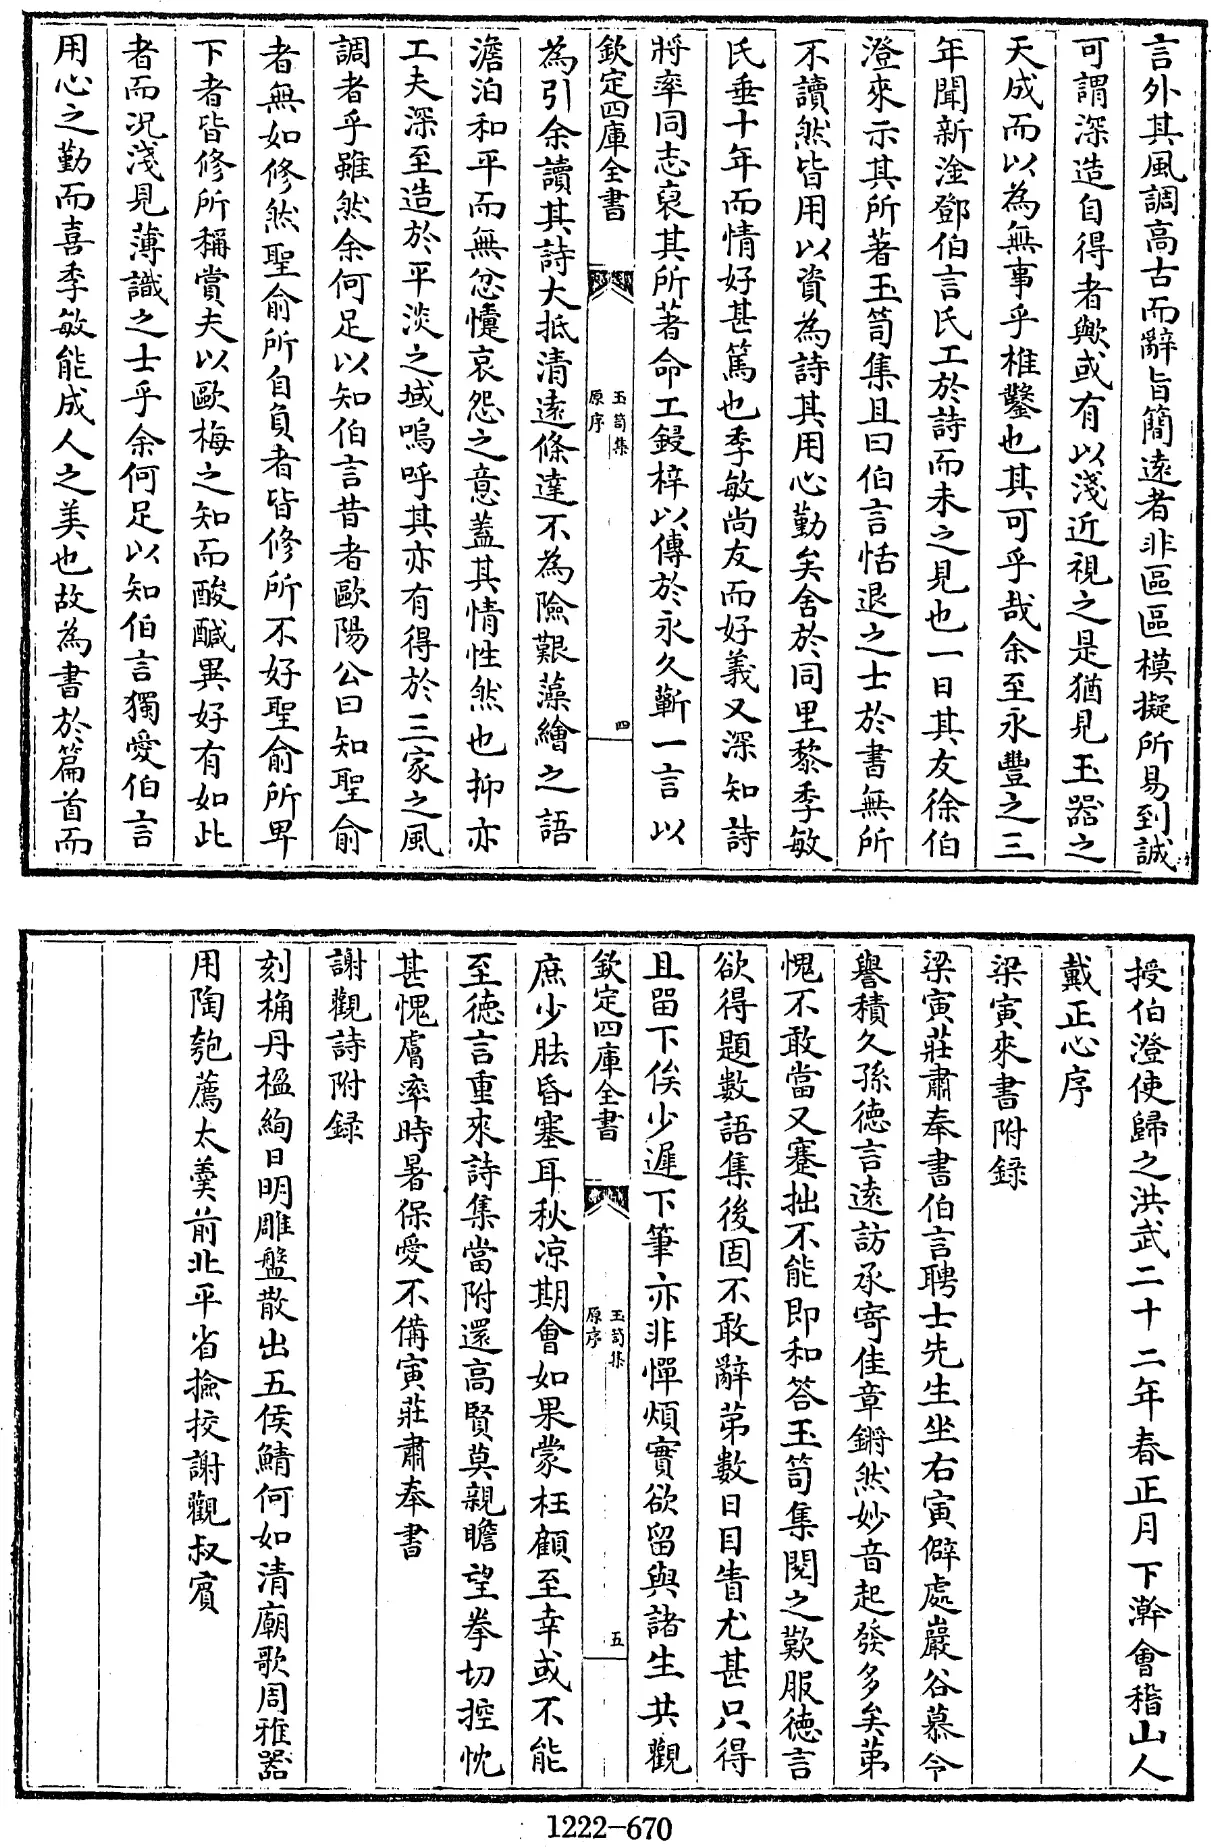 言外其風調高古而辭旨簡遠者非區區模擬所易到誠
可謂深造自得者歟或有以淺近視之是猶見玉器之
天成而以為無事乎椎鑿也其可乎哉余至永豐之三
年聞新淦鄧伯言氏工於詩而未之見也一日其友徐伯
澄來示其所著玉笥集且曰伯言恬退之士於書無所
不讀然皆用以資為詩其用心勤矣舍於同里黎季敏
氏垂十年而情好甚篤也季敏尚友而好義又深知詩
將率同志裒其所著命工鋟梓以傳於永久蘄一言以
欽定四庫全書
玉笥集
原序
四
為引余讀其詩大抵清遠條達不為險艱藻繪之語
澹泊和平而無忿懥哀怨之意蓋其情性然也抑亦
工夫深至造於平淡之域嗚呼其亦有得於三家之風
調者乎雖然余何足以知伯言昔者歐陽公曰知聖俞
者無如修然聖俞所自負者皆修所不好聖俞所卑
下者皆修所稱賞夫以歐梅之知而酸醎異好有如此
者而況淺見薄識之士乎余何足以知伯言獨愛伯言
用心之勤而喜季敏能成人之美也故為書於篇首而
授伯澄使歸之洪武二十二年春正月下澣會稽山人
戴正心序
梁寅來書附錄
梁寅莊肅奉書伯言聘士先生坐右寅僻處巖谷慕令
譽積久孫徳言遠訪承寄佳章鏘然妙音起發多矣第
愧不敢當又蹇拙不能即和答玉笥集閱之歎服徳言
欲得題數語集後固不敢辭第數日目眚尤甚只得
且留下俟少遲下筆亦非憚煩實欲留與諸生共觀
欽定四庫全書
玉笥集
原序
五
庶少胠昏塞耳秋凉期會如果蒙枉顧至幸或不能
至徳言重來詩集當附還高賢莫親瞻望拳切控忱
甚愧膚率時暑保愛不備寅莊肅奉書
謝觀詩附録
刻桷丹楹絢日明雕盤散出五侯鯖何如清廟歌周雅器
用陶匏薦太羮前北平省撿挍謝觀叔賓
1222-670